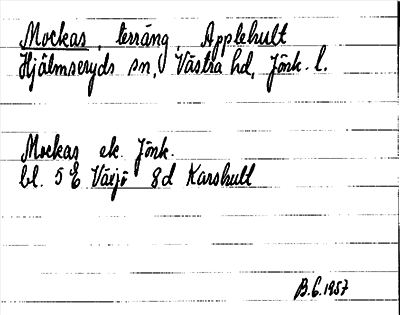 Mockas, terräng, Applehult
Hjälmseryds sn, Västra hd, Jönk. l.
Mockas ek. Jönk.
bl. 5 E Växjö 8d Karshult
B.G. 1957